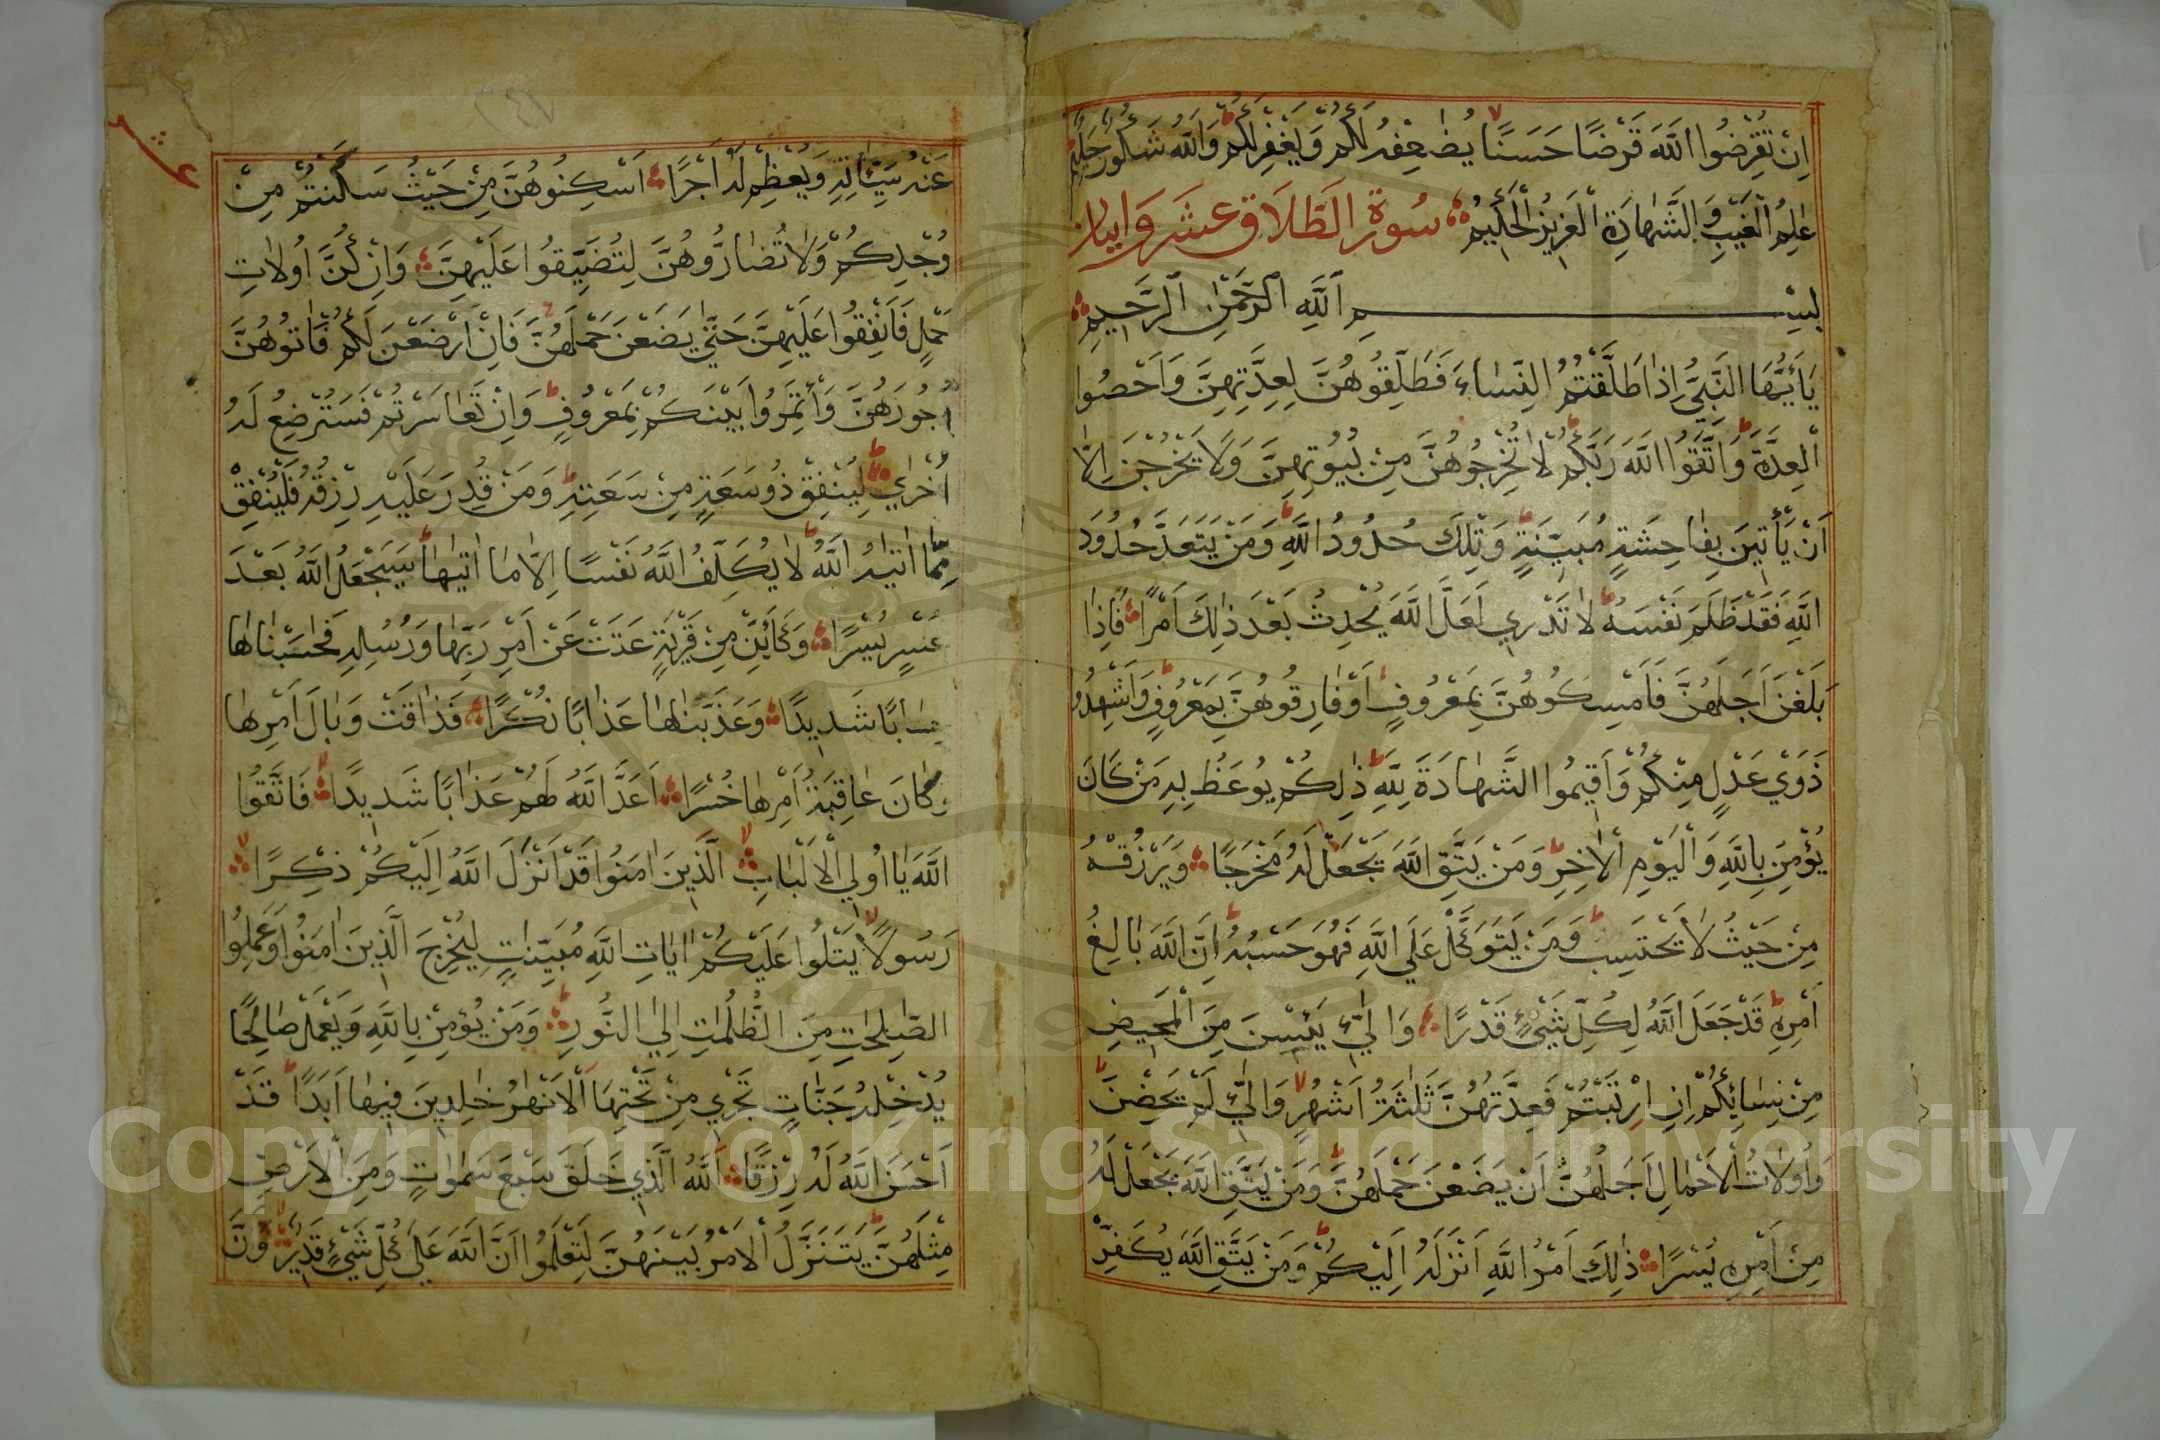 اِنْ تُقْرِضُوا اللّٰهَ قَرْضًا حَسَنًا يُضٰعِفْهُ لَكُمْ وَيَغْفِرْ لَكُمْ وَاللّٰهُ شَكُورٌ حَلِيمٌ
عٰلِمُ الْغَيْبِ وَالشَّهَادَةِ الْعَزِيزُ الْحَكِيمُ سُورَةُ الطَّلَاقِ عشر
بِسْمِ اللّٰهِ الرَّحْمٰنِ الرَّحِيمِ
يَاأَيُّهَا النَّبِيُّ اِذَا طَلَّقْتُمُ النِّسَاءَ فَطَلِّقُوهُنَّ لِعِدَّتِهِنَّ وَاَحْصُوا
الْعِدَّةَ وَاتَّقُوا اللّٰهَ رَبَّكُمْ لَا تُخْرِجُوهُنَّ مِنْ بُيُوتِهِنَّ وَلَا يَخْرُجْنَ اِلَّا
اَنْ يَأْتِينَ بِفَاحِشَةٍ مُبَيِّنَةٍ وَتِلْكَ حُدُودُ اللّٰهِ وَمَنْ يَتَعَدَّ حُدُودَ
اللّٰهِ فَقَدْ ظَلَمَ نَفْسَهُ لَا تَدْرِي لَعَلَّ اللّٰهَ يُحْدِثُ بَعْدَ ذٰلِكَ اَمْرًا فَاِذَا
بَلَغْنَ اَجَلَهُنَّ فَاَمْسِكُوهُنَّ بِمَعْرُوفٍ اَوْ فَارِقُوهُنَّ بِمَعْرُوفٍ وَاَشْهِدُوا
ذَوَيْ عَدْلٍ مِنْكُمْ وَاَقِيمُوا الشَّهَادَةَ لِلّٰهِ ذٰلِكُمْ يُوعَظُ بِهِ مَنْ كَانَ
يُؤْمِنُ بِاللّٰهِ وَالْيَوْمِ الْاٰخِرِ وَمَنْ يَتَّقِ اللّٰهَ يَجْعَلْ لَهُ مَخْرَجًا وَيَرْزُقْهُ
مِنْ حَيْثُ لَا يَحْتَسِبُ وَمَنْ يَتَوَكَّلْ عَلَي اللّٰهِ فَهُوَ حَسْبُهُ اِنَّ اللّٰهَ بَالِغُ
اَمْرِهِ قَدْ جَعَلَ اللّٰهُ لِكُلِّ شَيْئٍ قَدْرًا وَالّٰئِي يَئِسْنَ مِنَ الْمَحِيضِ
مِنْ نِسَائِكُمْ اِنِ ارْتَبْتُمْ فَعِدَّتُهُنَّ ثَلٰثَةُ اَشْهُرٍ وَالّٰئِي لَمْ يَحِضْنَ
وَاُولَاتُ الْاَحْمَالِ اَجَلُهُنَّ اَنْ يَضَعْنَ حَمْلَهُنَّ وَمَنْ يَتَّقِ اللّٰهَ يَجْعَلْ لَهُ
مِنْ اَمْرِهِ يُسْرًا ذٰلِكَ اَمْرُ اللّٰهِ اَنْزَلَهُ اِلَيْكُمْ وَمَنْ يَتَّقِ اللّٰهَ يُكَفِّرْ
عَنْهُ سَيِّاٰتِهِ وَيُعْظِمْ لَهُ اَجْرًا اَسْكِنُوهُنَّ مِنْ حَيْثُ سَكَنْتُمْ مِنْ
وُجْدِكُمْ وَلَا تُضَارُّوهُنَّ لِتُضَيِّقُوا عَلَيْهِنَّ وَاِنْ كُنَّ اُولَاتِ
حَمْلٍ فَاَنْفِقُوا عَلَيْهِنَّ حَتّٰي يَضَعْنَ حَمْلَهُنَّ فَاِنْ اَرْضَعْنَ لَكُمْ فَاٰتُوهُنَّ
اُجُورَهُنَّ وَأْتَمِرُوا بَيْنَكُمْ بِمَعْرُوفٍ وَاِنْ تَعَاسَرْتُمْ فَسَتُرْضِعُ لَهُ
اُخْرٰي لِيُنْفِقْ ذُو سَعَةٍ مِنْ سَعَتِهِ وَمَنْ قُدِرَ عَلَيْهِ رِزْقُهُ فَلْيُنْفِقْ
مِمَّا اٰتٰيهُ اللّٰهُ لَا يُكَلِّفُ اللّٰهُ نَفْسًا اِلَّا مَا اٰتٰيهَا سَيَجْعَلُ اللّٰهُ بَعْدَ
عُسْرٍ يُسْرًا وَكَاَيِّنْ مِنْ قَرْيَةٍ عَتَتْ عَنْ اَمْرِ رَبِّهَا وَرُسُلِهِ فَحَاسَبْنَاهَا
حِسَابًا شَدِيدًا وَعَذَّبْنَاهَا عَذَابًا نُكْرًا فَذَاقَتْ وَبَالَ اَمْرِهَا
وَكَانَ عَاقِبَةُ اَمْرِهَا خُسْرًا اَعَدَّ اللّٰهُ لَهُمْ عَذَابًا شَدِيدًا فَاتَّقُوا
اللّٰهَ يَا اُولِي الْاَلْبَابِ الَّذِينَ اٰمَنُوا قَدْ اَنْزَلَ اللّٰهُ اِلَيْكُمْ ذِكْرًا
رَسُولًا يَتْلُوا عَلَيْكُمْ اٰيَاتِ اللّٰهِ مُبَيِّنَاتٍ لِيُخْرِجَ الَّذِينَ اٰمَنُوا وَعَمِلُوا
الصّٰلِحَاتِ مِنَ الظُّلُمَاتِ اِلَي النُّورِ وَمَنْ يُؤْمِنْ بِاللّٰهِ وَيَعْمَلْ صَالِحًا
يُدْخِلْهُ جَنَّاتٍ تَجْرِي مِنْ تَحْتِهَا الْاَنْهَارُ خٰلِدِينَ فِيهَا اَبَدًا قَدْ
اَحْسَنَ اللّٰهُ لَهُ رِزْقًا اَللّٰهُ الَّذِي خَلَقَ سَبْعَ سَمٰوَاتٍ وَمِنَ الْاَرْضِ
مِثْلَهُنَّ يَتَنَزَّلُ الْاَمْرُ بَيْنَهُنَّ لِتَعْلَمُوا اَنَّ اللّٰهَ عَلَي كُلِّ شَيْئٍ قَدِيرٌ وَاَنَّ
Copyright © King Saud University